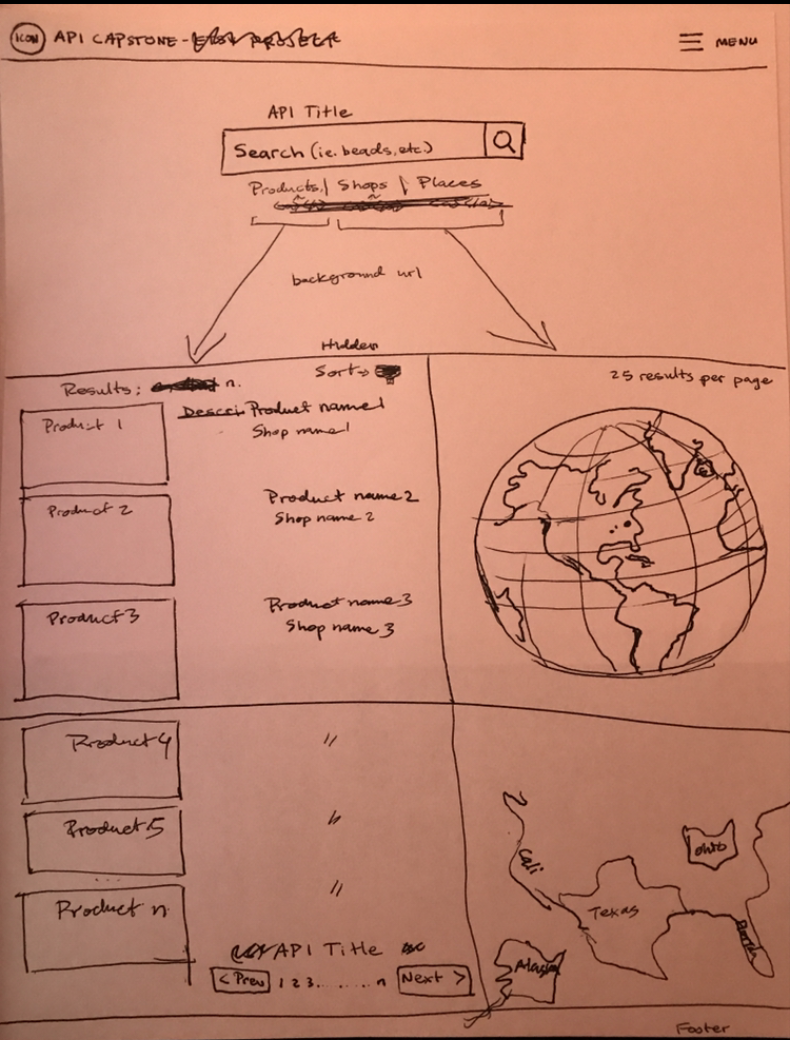 ICON API CAPSTONE - MENU
API Title
Search (ie. beads, etc.)
Products / Shops / Places
background url
Hidden
Results: n.
Sort
25 results per page
Product 1
Descri Product name 1
Shop name 1
Product 2
Product name 2
Shop name 2
Product 3
Product name 3
Shop name 3
Product 4 "
Product 5 "
...
Product n "
Cali
Ohio
Texas
Alaska
API Title
< Prev 1 2 3 ....... n Next >
Footer